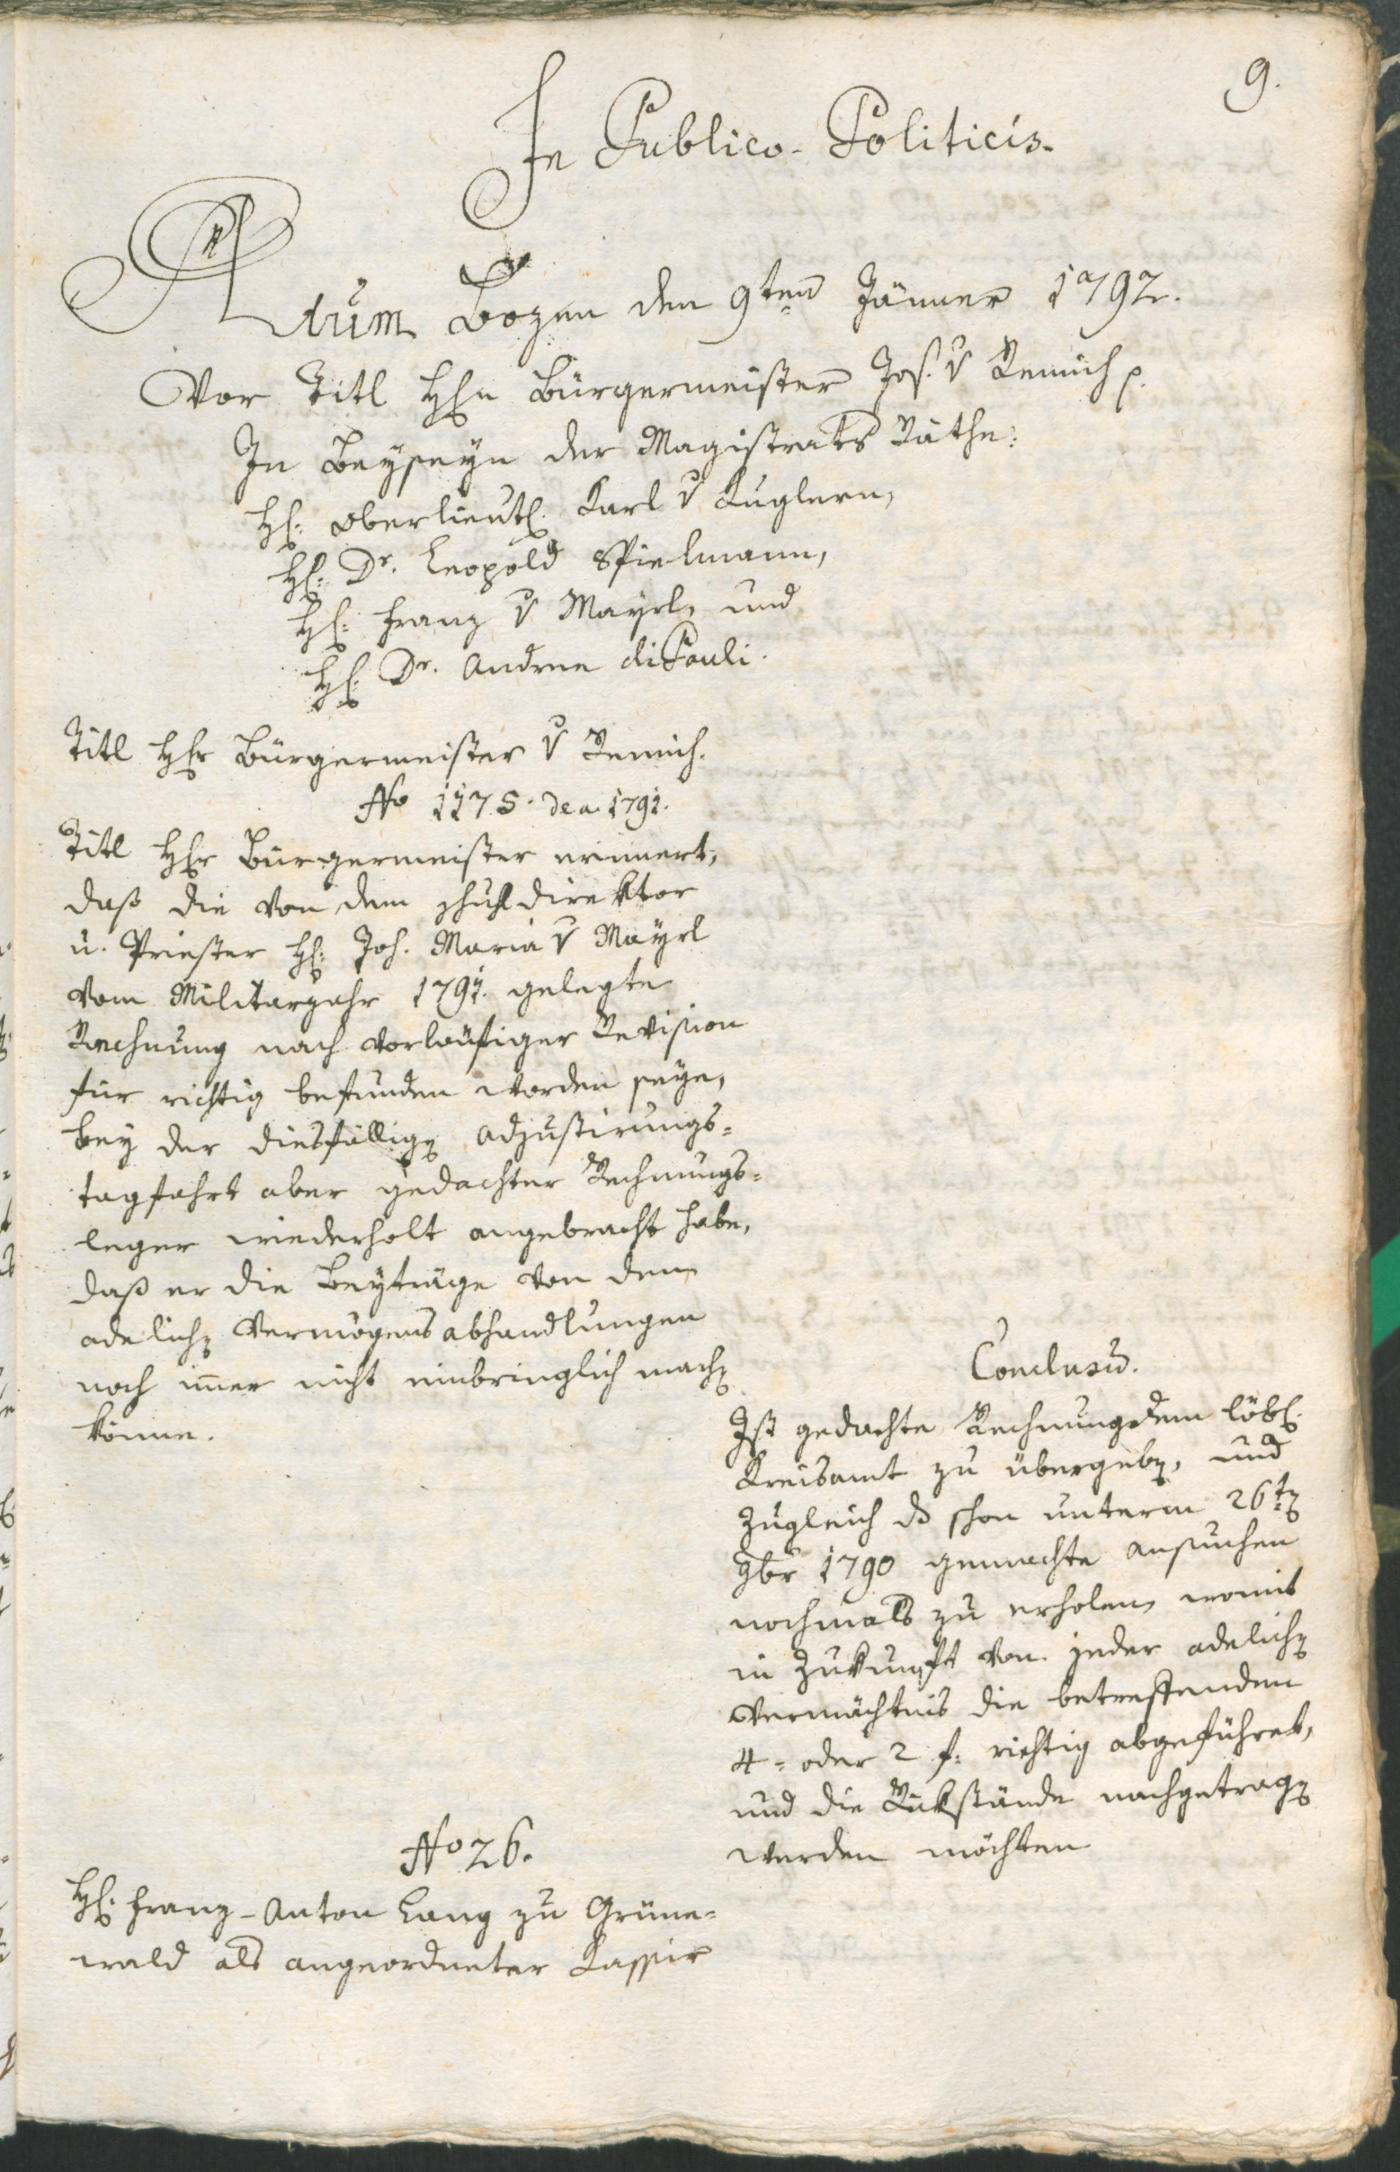 9.
In Publico-Politicis.
Actum Bozen den 9ten Jänner 1792.
Vor Titl Hhn Bürgermeister Jos. v Remich p.
In Beyseyn der Magistrats Räthe:
H: Oberlieut: Karl v Kuglern,
H: Dr. Leopold Spielmann,
H: Franz v Mayrl, und
H: Dr. Andree diPauli.
Titl Hhr Bürgermeister v Remich.
No 1175. de a. 1791.
Titl Hhr Bürgermeister erinnert,
daß die von dem Schuldirektor
u. Priester H: Joh. Maria v Mayrl
vom Militarjahr 1791. gelegte
Rechnung nach vorläufiger Revision
für richtig befunden worden seye,
bey der diesfällig Adjustirungs-
tagfahrt aber gedachter Rechnungs-
leger wiederholt angebracht habe,
daß er die Beyträge von den
adelich Vermögensabhandlungen
noch imer nicht einbringlich mach
könne.
Conclusu.
Ist gedachte Rechnung dem löbl.
Kreisamt zu übergeb, und
zugleich ds schon unterm 26t
9br 1790 gemachte Ansuchen
nochmals zu erholen, womit
in Zukunft von jeder adelich
Vermächtnis die betreffenden
4- oder 2 f: richtig abgeführet,
und die Rükstände nachgetrag
werden möchten
No 26.
H: Franz-Anton Lang zu Grüne-
wald als angeordneter Kassir